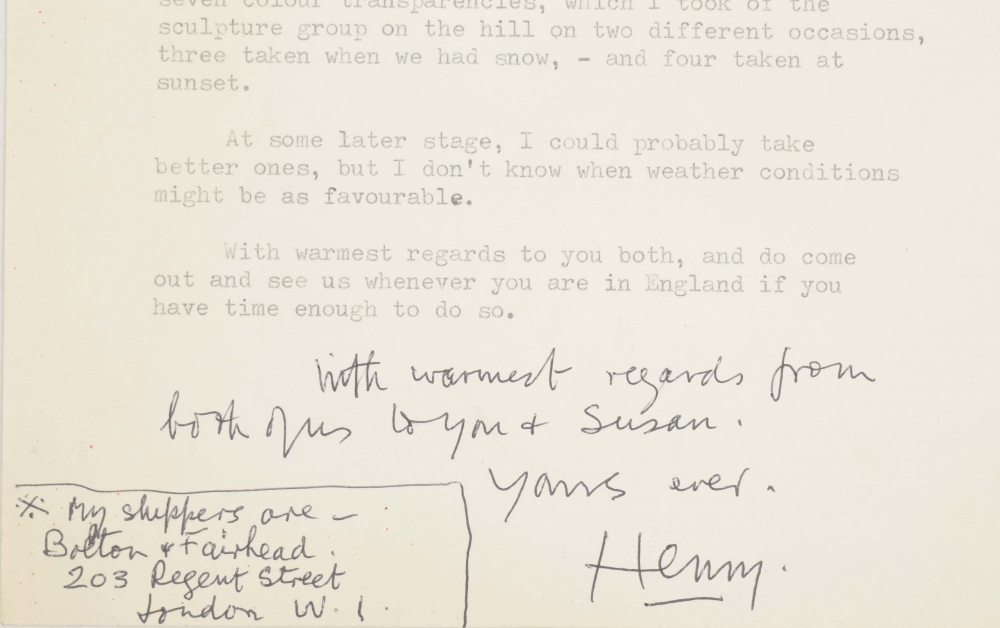 seven colour transparencies, which I took of the
sculpture group on the hill on two different occasions,
three taken when we had snow, - and four taken at
sunset.
At some later stage, I could probably take
better ones, but I don't know when weather conditions
might be as favourable.
With warmest regards to you both, and do come
out and see us whenever you are in England if you
have time enough to do so.
With warmest regards from
both of us to you & Susan.
Yours ever.
Henry.
※ My shippers are –
Bolton & Fairhead.
203 Regent Street
London W.1.